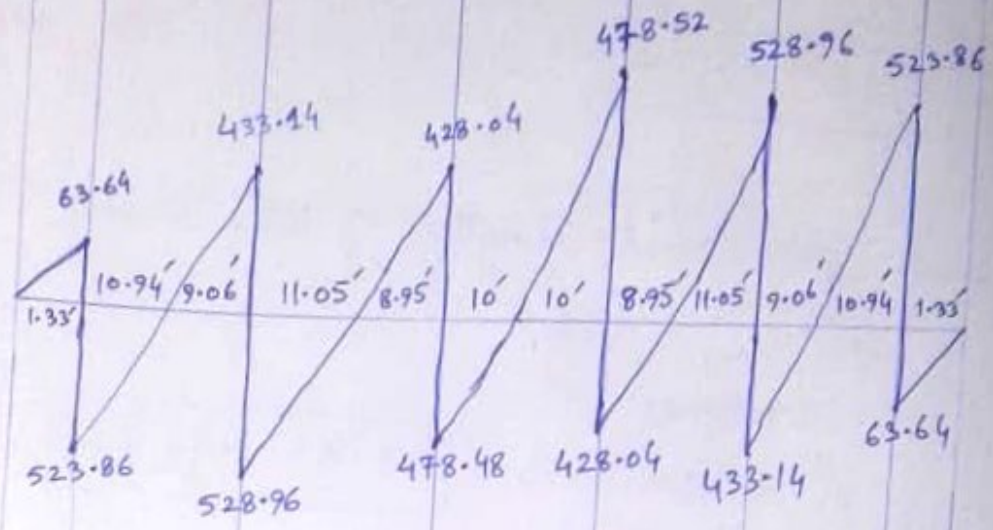 478.52
528.96
523.86
433.14
428.04
63.64
10.94′ 9.06′ 11.05′ 8.95′ 10′ 10′ 8.95′ 11.05′ 9.06′ 10.94′ 1.33′
1.33′
63.64
523.86
478.48
428.04
433.14
528.96